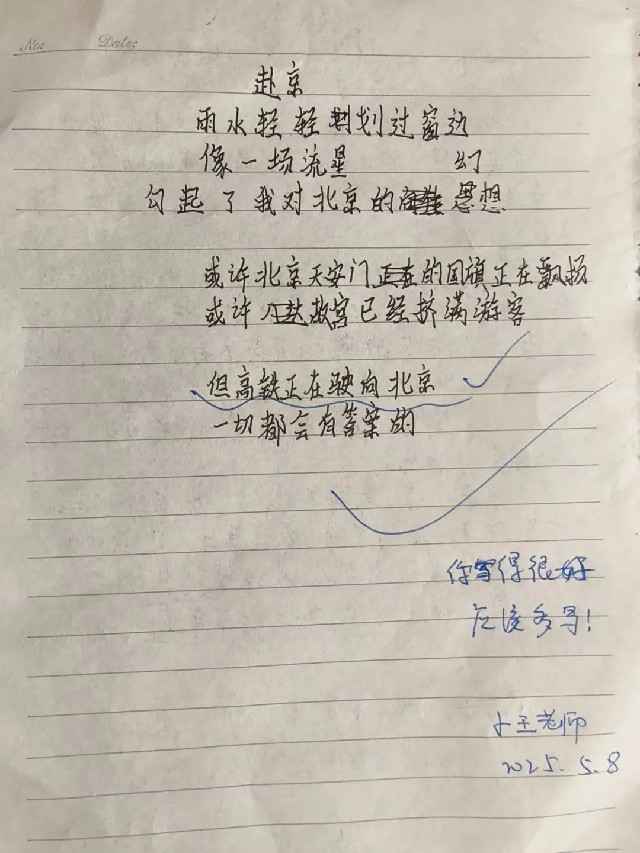 No:  Date:
赴京
雨水轻轻划过窗边
像一场流星 幻
勾起了我对北京的思想
或许北京天安门的国旗正在飘扬
或许故宫已经挤满游客
但高铁正在驶向北京
一切都会有答案的
你写得很好
应该多写!
小王老师
2025.5.8